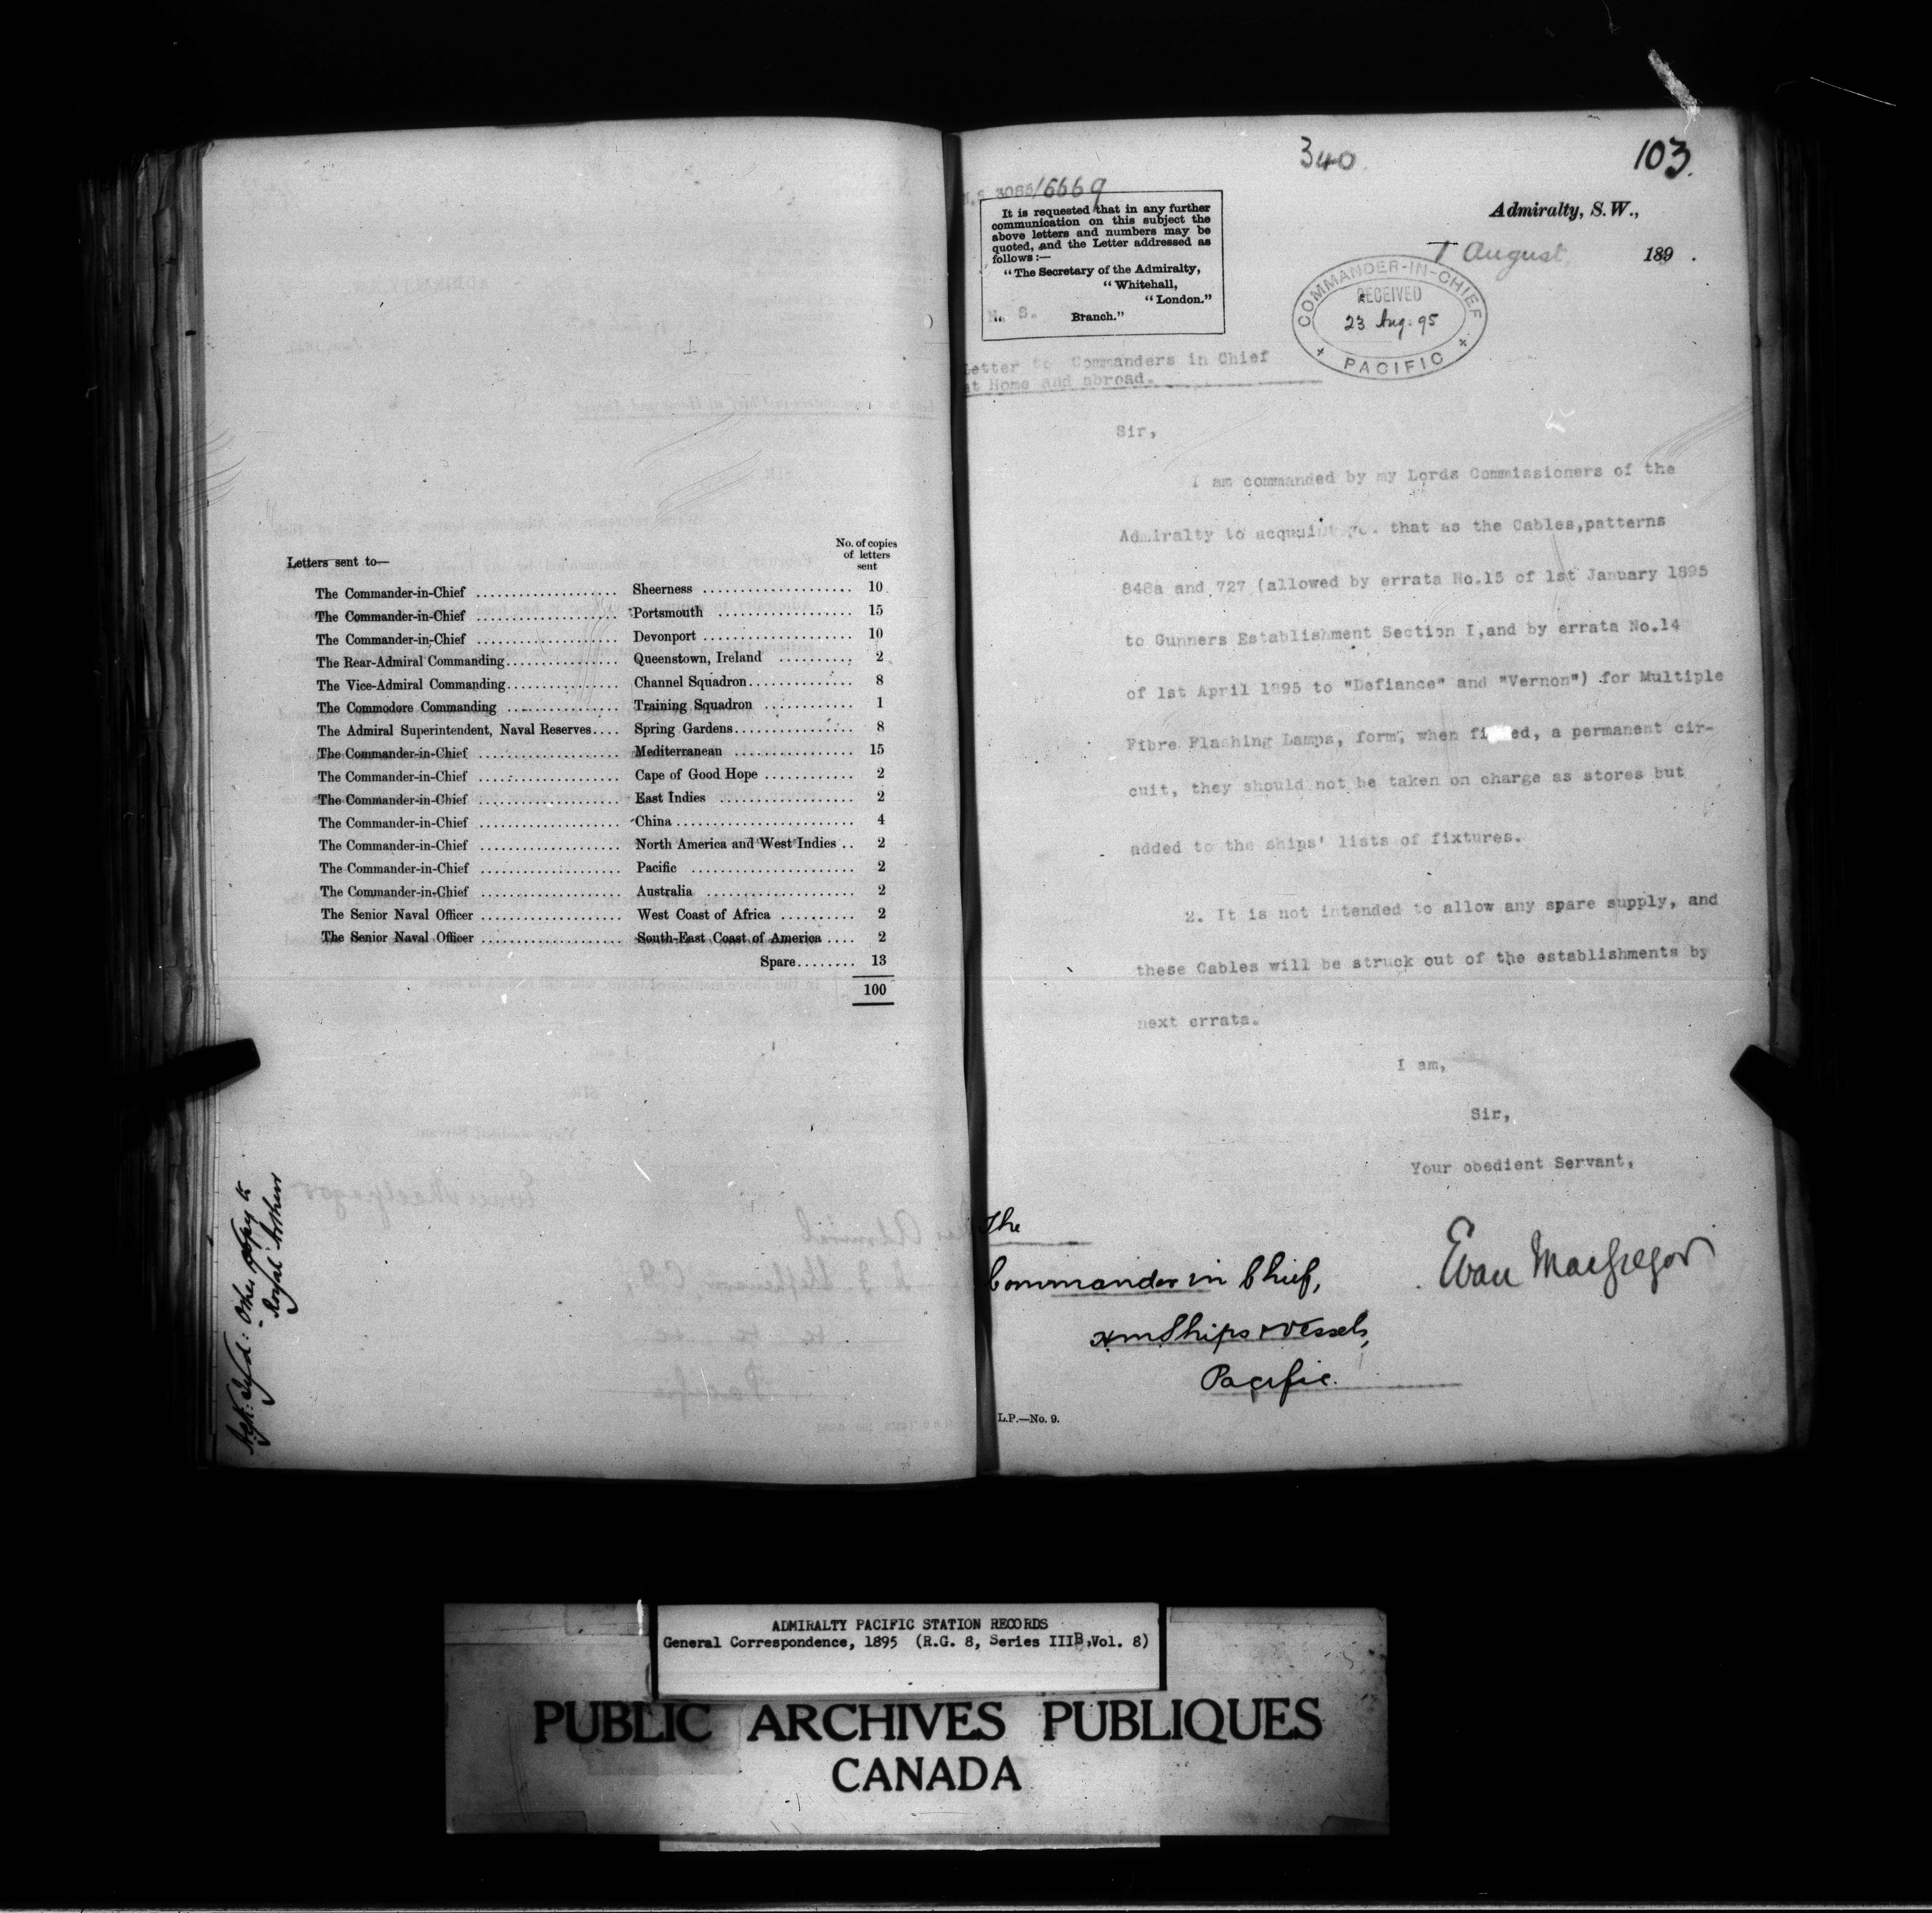 Letters sent to—
No. of copies
of letters
sent
The Commander-in-Chief .................... Sheerness .................... 10
The Commander-in-Chief .................... Portsmouth .................... 15
The Commander-in-Chief .................... Devonport .................... 10
The Rear-Admiral Commanding................ Queenstown, Ireland .......... 2
The Vice-Admiral Commanding................ Channel Squadron............... 8
The Commodore Commanding ................ Training Squadron ............ 1
The Admiral Superintendent, Naval Reserves.... Spring Gardens................ 8
The Commander-in-Chief .................... Mediterranean ................ 15
The Commander-in-Chief .................... Cape of Good Hope ............ 2
The Commander-in-Chief .................... East Indies .................. 2
The Commander-in-Chief .................... China ........................ 4
The Commander-in-Chief .................... North America and West Indies .. 2
The Commander-in-Chief .................... Pacific ...................... 2
The Commander-in-Chief .................... Australia .................... 2
The Senior Naval Officer .................... West Coast of Africa .......... 2
The Senior Naval Officer .................... South-East Coast of America .... 2
Spare........ 13
100
Other copy to
Royal Arthur
340
103.
3085/6669
It is requested that in any further
communication on this subject the
above letters and numbers may be
quoted, and the Letter addressed as
follows:—
"The Secretary of the Admiralty,
"Whitehall,
"London."
" N. S. Branch."
Admiralty, S.W.,
August, 189 .
COMMANDER-IN-CHIEF
RECEIVED
23 Aug. 95
+ PACIFIC +
Letter to Commanders in Chief
at Home and abroad.
Sir,
I am commanded by my Lords Commissioners of the
Admiralty to acquaint you that as the Cables,patterns
848a and 727 (allowed by errata No.15 of 1st January 1895
to Gunners Establishment Section I,and by errata No.14
of 1st April 1895 to "Defiance" and "Vernon") for Multiple
Fibre Flashing Lamps, form, when fi ed, a permanent cir-
cuit, they should not be taken on charge as stores but
added to the ships' lists of fixtures.
2. It is not intended to allow any spare supply, and
these Cables will be struck out of the establishments by
next errata.
I am,
Sir,
Your obedient Servant,
Evan MacGregor
The
Commander in Chief,
HM Ships & Vessels,
Pacific.
L.P.—No. 9.
ADMIRALTY PACIFIC STATION RECORDS
General Correspondence, 1895 (R.G. 8, Series IIIB,Vol. 8)
PUBLIC ARCHIVES PUBLIQUES
CANADA